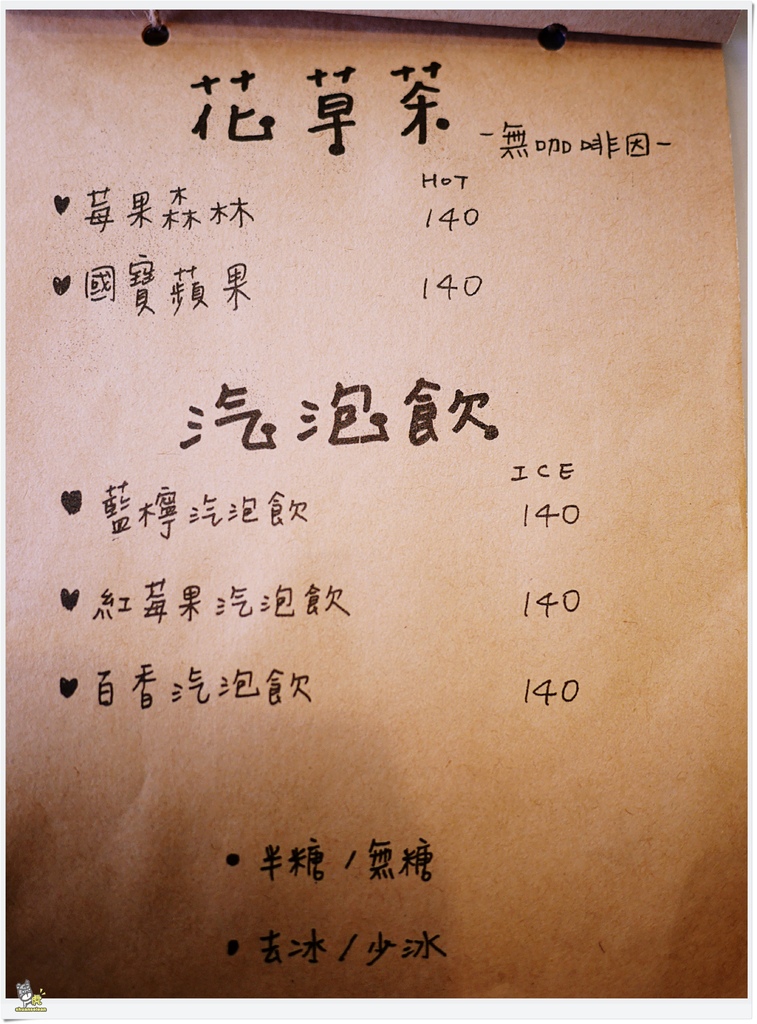 花草茶 -無咖啡因-
HOT
♥ 莓果森林 140
♥ 國寶蘋果 140
汽泡飲
ICE
♥ 藍檸汽泡飲 140
♥ 紅莓果汽泡飲 140
♥ 百香汽泡飲 140
• 半糖/無糖
• 去冰/少冰